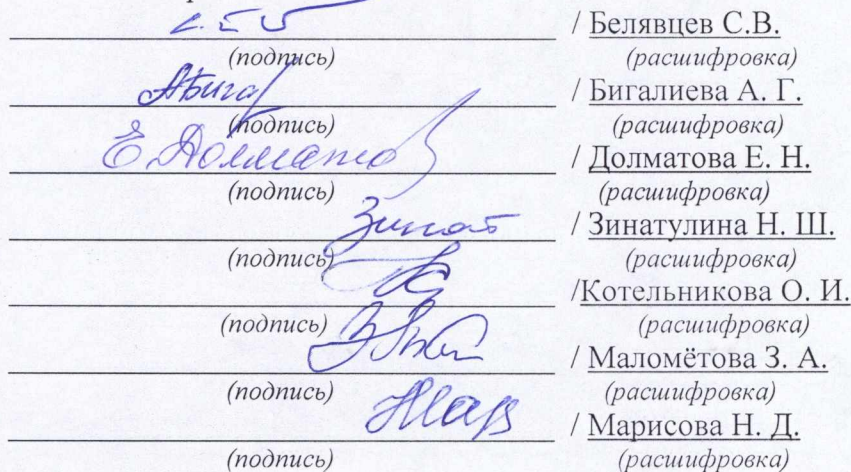 / Белявцев С.В.
(подпись) (расшифровка)
/ Бигалиева А. Г.
(подпись) (расшифровка)
Е.Долматова / Долматова Е. Н.
(подпись) (расшифровка)
Зинат / Зинатулина Н. Ш.
(подпись) (расшифровка)
/Котельникова О. И.
(подпись) (расшифровка)
/ Маломётова З. А.
(подпись) (расшифровка)
/ Марисова Н. Д.
(подпись) (расшифровка)